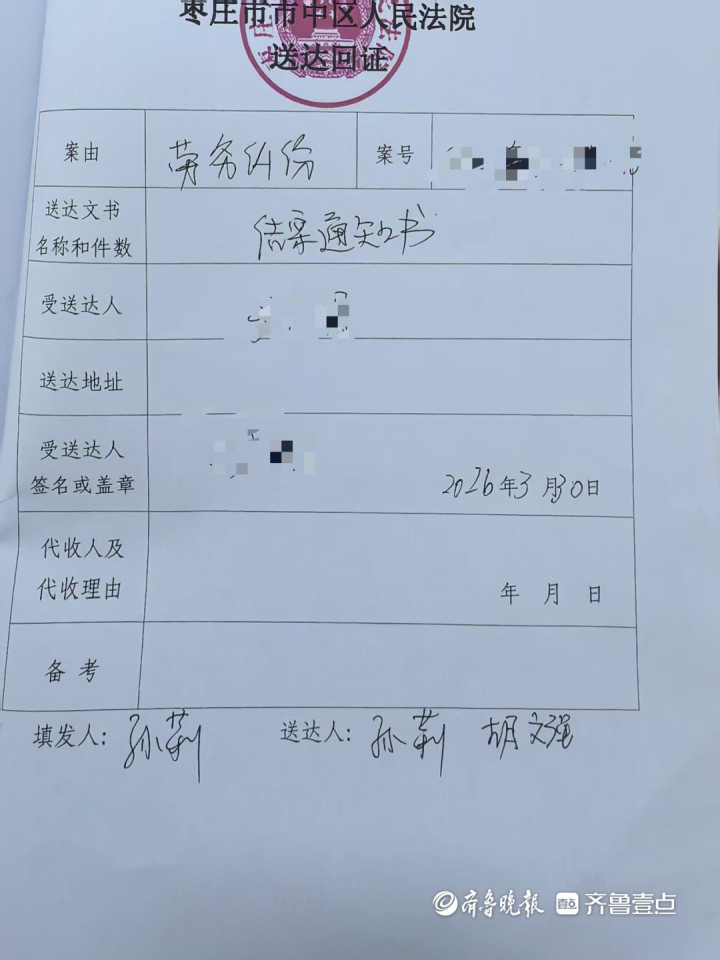 枣庄市市中区人民法院
送达回证
案由 劳务纠纷 案号
送达文书
名称和件数 结案通知书
受送达人
送达地址
受送达人
签名或盖章 2026年3月30日
代收人及
代收理由 年 月 日
备考
填发人：孙莉 送达人：孙莉 胡文强
齐鲁晚报 齐鲁壹点